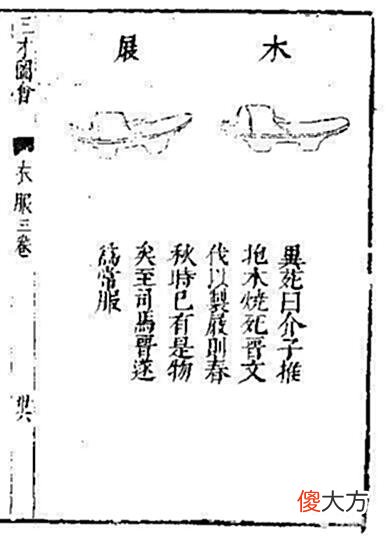 木屐
異苑曰介子推
抱木燒死晉文
伐以製屐則春
秋時已有是物
矣至司馬晉遂
爲常服
三才圖會
衣服三卷
傻大方